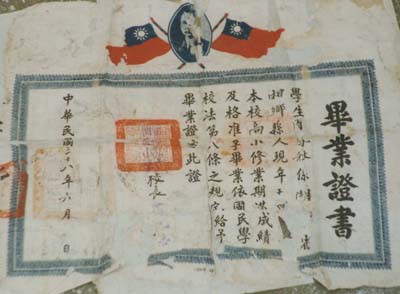 畢業證書
學生 係湖
湘鄉縣人現年十四
本校高小修業期滿成績
及格准予畢業依國民學
校法第八條之規定給予
畢業證書此證
校長
中華民國三十八年六月 日